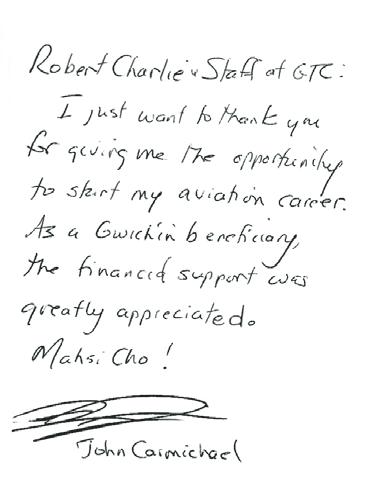 Robert Charlie & Staff at GTC:
I just want to thank you
for giving me the opportunity
to start my aviation career.
As a Gwich'in beneficiary,
the financial support was
greatly appreciated.
Mahsi Cho!
John Carmichael